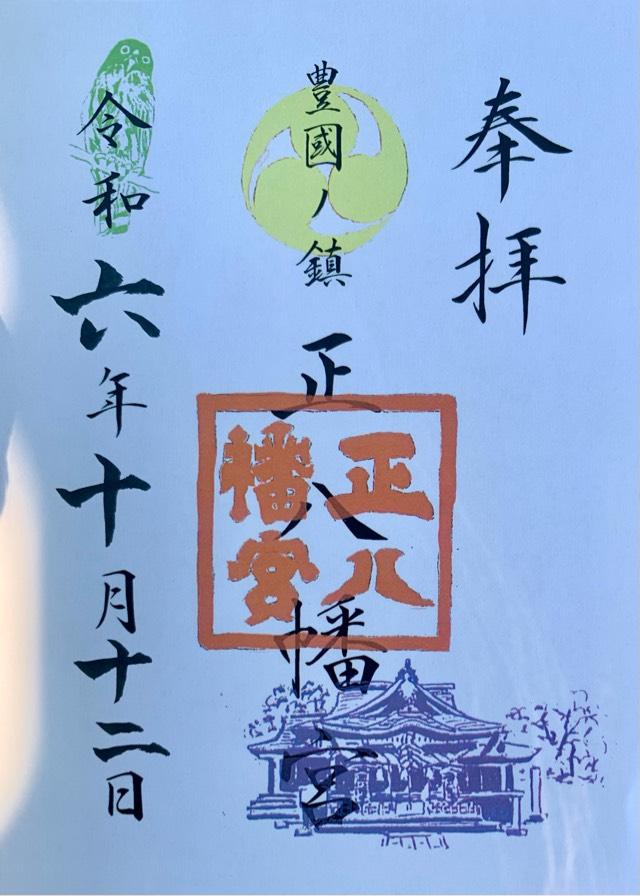 奉拝
豊國ノ鎮
正八幡宮
正八
幡宮
令和六年十月十二日